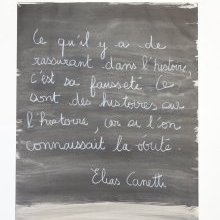 Ce qu'il y a de
rassurant dans l'histoire,
c'est sa fausseté. Ce
sont des histoires sur
l'histoire, car si l'on
connaissait la vérité.
Elias Canetti